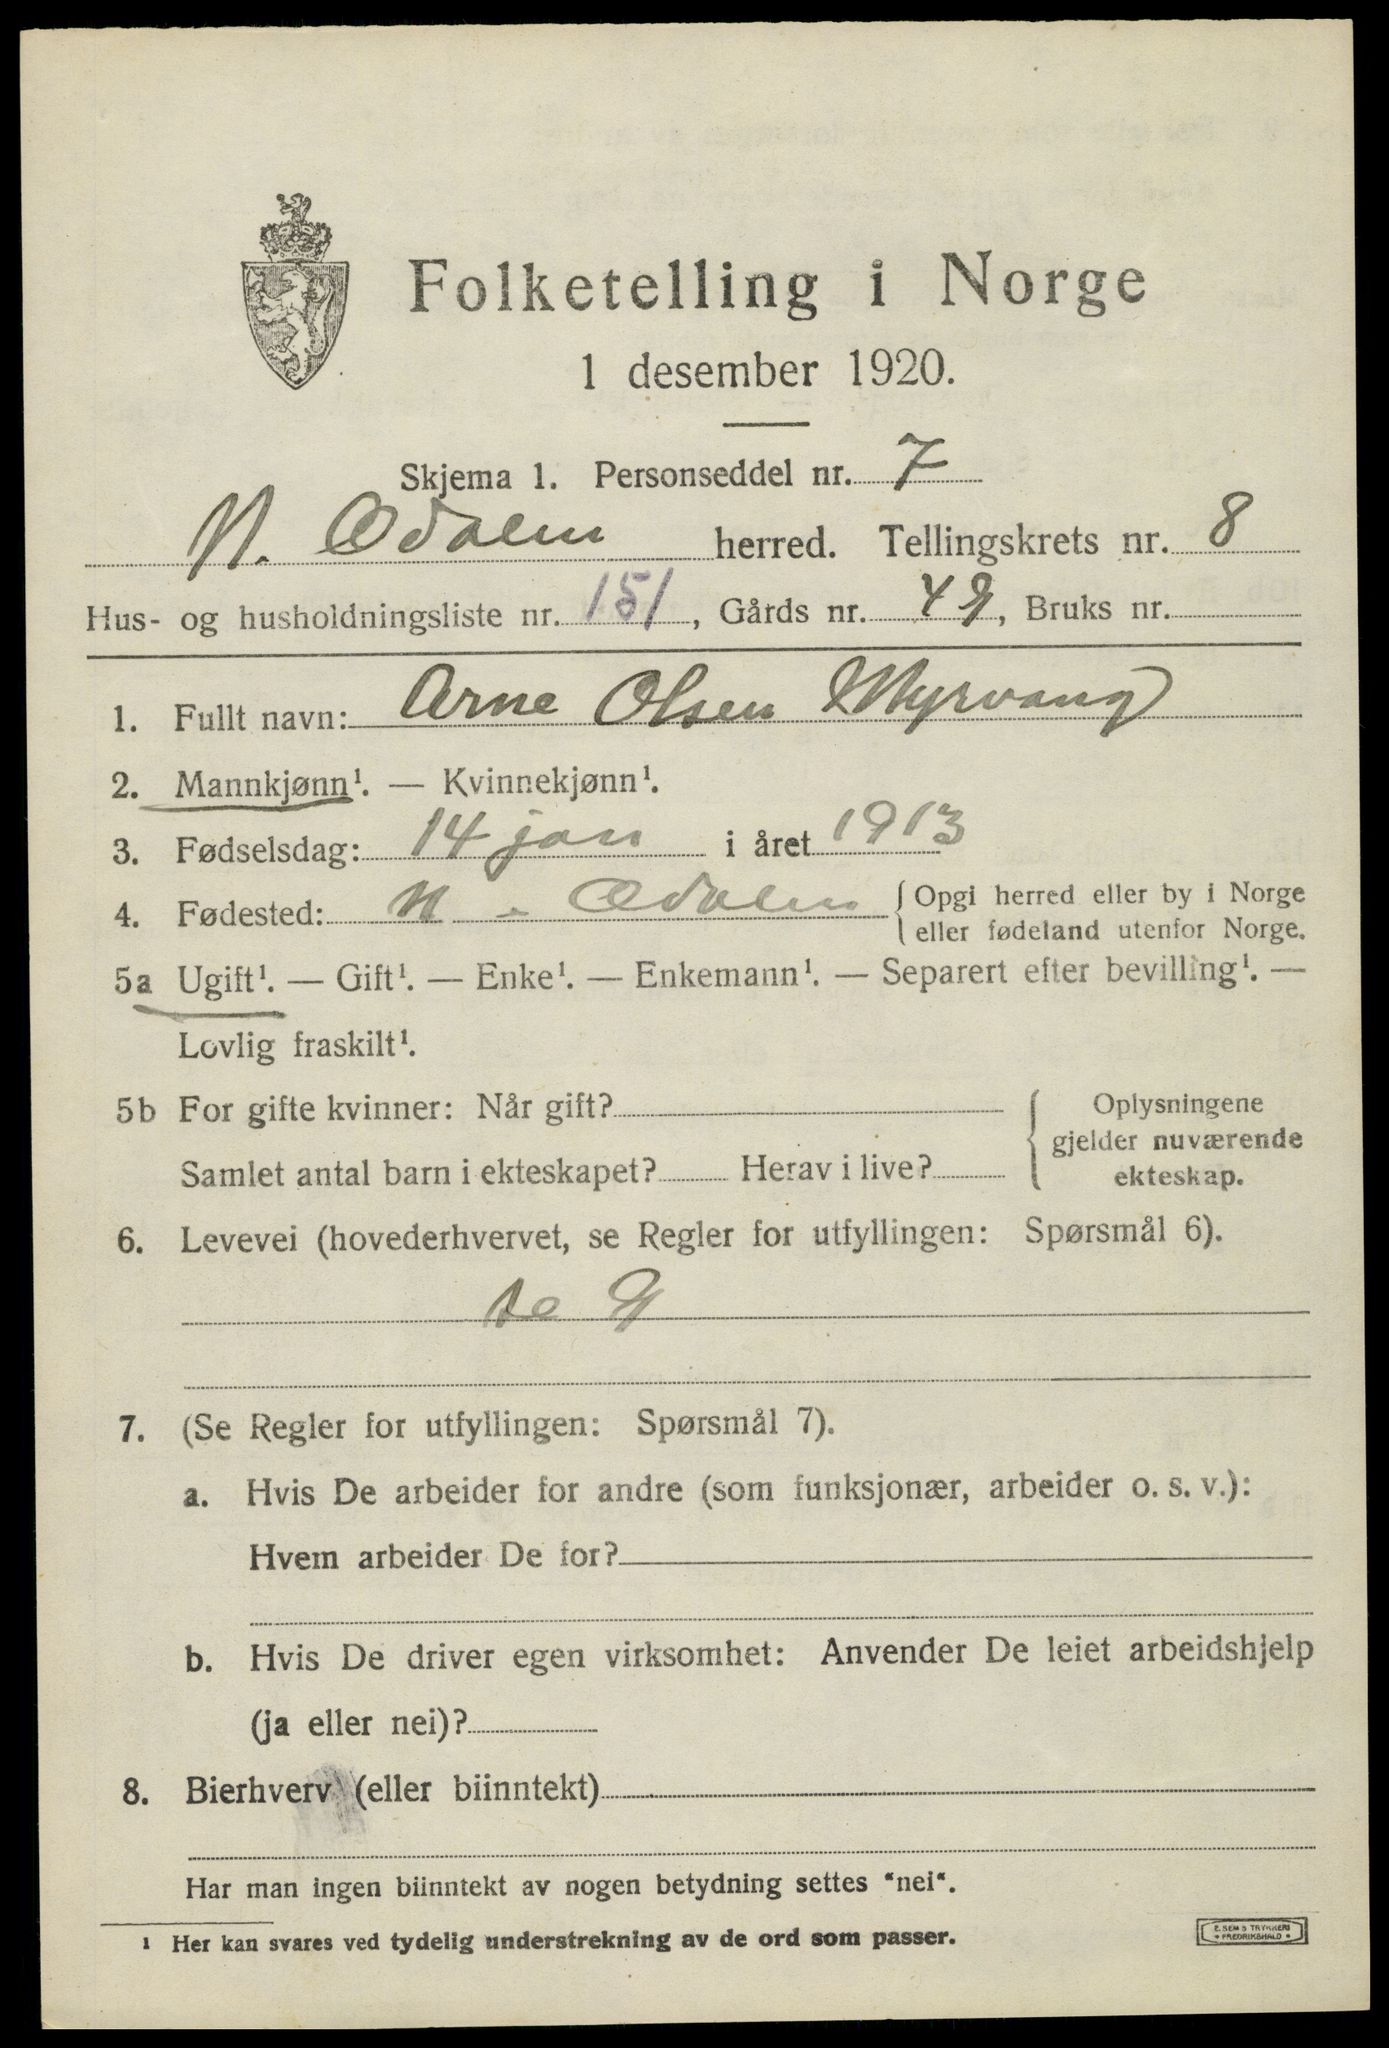 Folketelling i Norge
1 desember 1920.
Skjema 1. Personseddel nr. 7
N. Odalen herred. Tellingskrets nr. 8
Hus- og husholdningsliste nr. 151, Gårds nr. 49, Bruks nr.
1. Fullt navn: Arne Olsen Myrvang
2. Mannkjønn¹. — Kvinnekjønn¹.
3. Fødselsdag: 14 jan i året 1913
4. Fødested: N. Odalen { Opgi herred eller by i Norge
eller fødeland utenfor Norge.
5a Ugift¹. — Gift¹. — Enke¹. — Enkemann¹. — Separert efter bevilling¹. —
Lovlig fraskilt¹.
5b For gifte kvinner: Når gift?
Samlet antal barn i ekteskapet? Herav i live?
{ Oplysningene
gjelder nuværende
ekteskap.
6. Levevei (hovederhvervet, se Regler for utfyllingen: Spørsmål 6).
se 9
7. (Se Regler for utfyllingen: Spørsmål 7).
a. Hvis De arbeider for andre (som funksjonær, arbeider o. s. v.):
Hvem arbeider De for?
b. Hvis De driver egen virksomhet: Anvender De leiet arbeidshjelp
(ja eller nei)?
8. Bierhverv (eller biinntekt)
Har man ingen biinntekt av nogen betydning settes "nei".
¹ Her kan svares ved tydelig understrekning av de ord som passer.
E. SEM'S TRYKKERI
• FREDRIKSHALD •